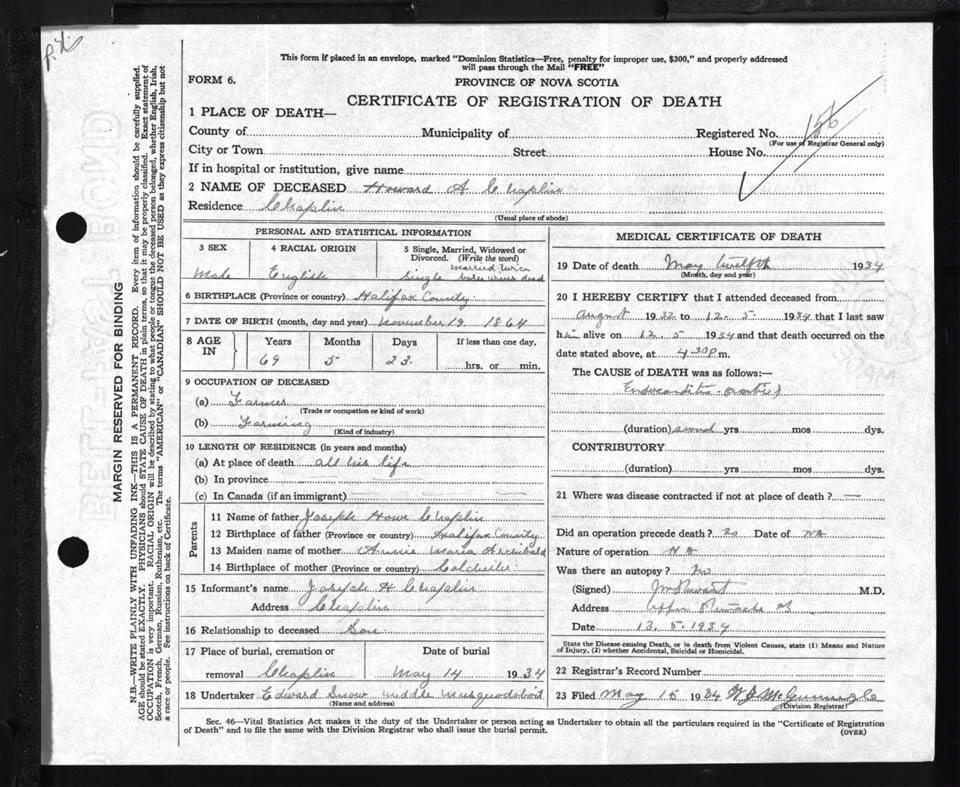 This form if placed in an envelope, marked "Dominion Statistics—Free, penalty for improper use, $300," and properly addressed
will pass through the Mail "FREE"
FORM 6.
PROVINCE OF NOVA SCOTIA
CERTIFICATE OF REGISTRATION OF DEATH
1 PLACE OF DEATH—
County of Municipality of Registered No. 156
(For use of Registrar General only)
City or Town Street House No.
If in hospital or institution, give name
2 NAME OF DECEASED Howard A Chaplin
Residence Chaplin
(Usual place of abode)
PERSONAL AND STATISTICAL INFORMATION
3 SEX Male
4 RACIAL ORIGIN English
5 Single, Married, Widowed or
Divorced. (Write the word)
Single married twice
both wives dead
6 BIRTHPLACE (Province or country) Halifax County
7 DATE OF BIRTH (month, day and year) November 19 1864
8 AGE IN
Years Months Days If less than one day,
69 5 23 hrs. or min.
9 OCCUPATION OF DECEASED
(a) Farmer
(Trade or occupation or kind of work)
(b) Farming
(Kind of industry)
10 LENGTH OF RESIDENCE (in years and months)
(a) At place of death all his life
(b) In province
(c) In Canada (if an immigrant)
Parents
11 Name of father Joseph Howe Chaplin
12 Birthplace of father (Province or country) Halifax County
13 Maiden name of mother Annie Maria Archibald
14 Birthplace of mother (Province or country) Colchester
15 Informant's name Joseph H Chaplin
Address Chaplin
16 Relationship to deceased Son
17 Place of burial, cremation or Date of burial
removal Chaplin May 14 1934
18 Undertaker Edward Snow middle musquodoboit
(Name and address)
MEDICAL CERTIFICATE OF DEATH
19 Date of death May twelfth 1934
(Month, day and year)
20 I HEREBY CERTIFY that I attended deceased from
August 1932 to 12. 5. 1934 that I last saw
him alive on 12. 5 1934 and that death occurred on the
date stated above, at 4.30 p.m.
The CAUSE of DEATH was as follows:—
Endocarditis
(duration) yrs mos dys.
CONTRIBUTORY
(duration) yrs mos dys.
21 Where was disease contracted if not at place of death? —
Did an operation precede death? no Date of
Nature of operation
Was there an autopsy? no
(Signed) M.D.
Address Upper Stewiacke
Date 12. 5. 1934
State the Disease causing Death, or in death from Violent Causes, state (1) Means and Nature
of Injury, (2) whether Accidental, Suicidal or Homicidal.
22 Registrar's Record Number
23 Filed May 15 1934
(Division Registrar)
Sec. 46—Vital Statistics Act makes it the duty of the Undertaker or person acting as Undertaker to obtain all the particulars required in the "Certificate of Registration
of Death" and to file the same with the Division Registrar who shall issue the burial permit.
(OVER)
MARGIN RESERVED FOR BINDING
N.B.—WRITE PLAINLY WITH UNFADING INK—THIS IS A PERMANENT RECORD. Every item of information should be carefully supplied.
AGE should be stated EXACTLY. PHYSICIANS should STATE CAUSE OF DEATH in plain terms, so that it may be properly classified. Exact statement of
OCCUPATION is very important. RACIAL ORIGIN will be described by stating to what people or tongue the deceased person belonged, whether English, Irish,
Scotch, French, German, Russian, Ruthenian, etc. The terms "AMERICAN" or "CANADIAN" SHOULD NOT BE USED as they express citizenship but not
a race or people. See instructions on back of Certificate.